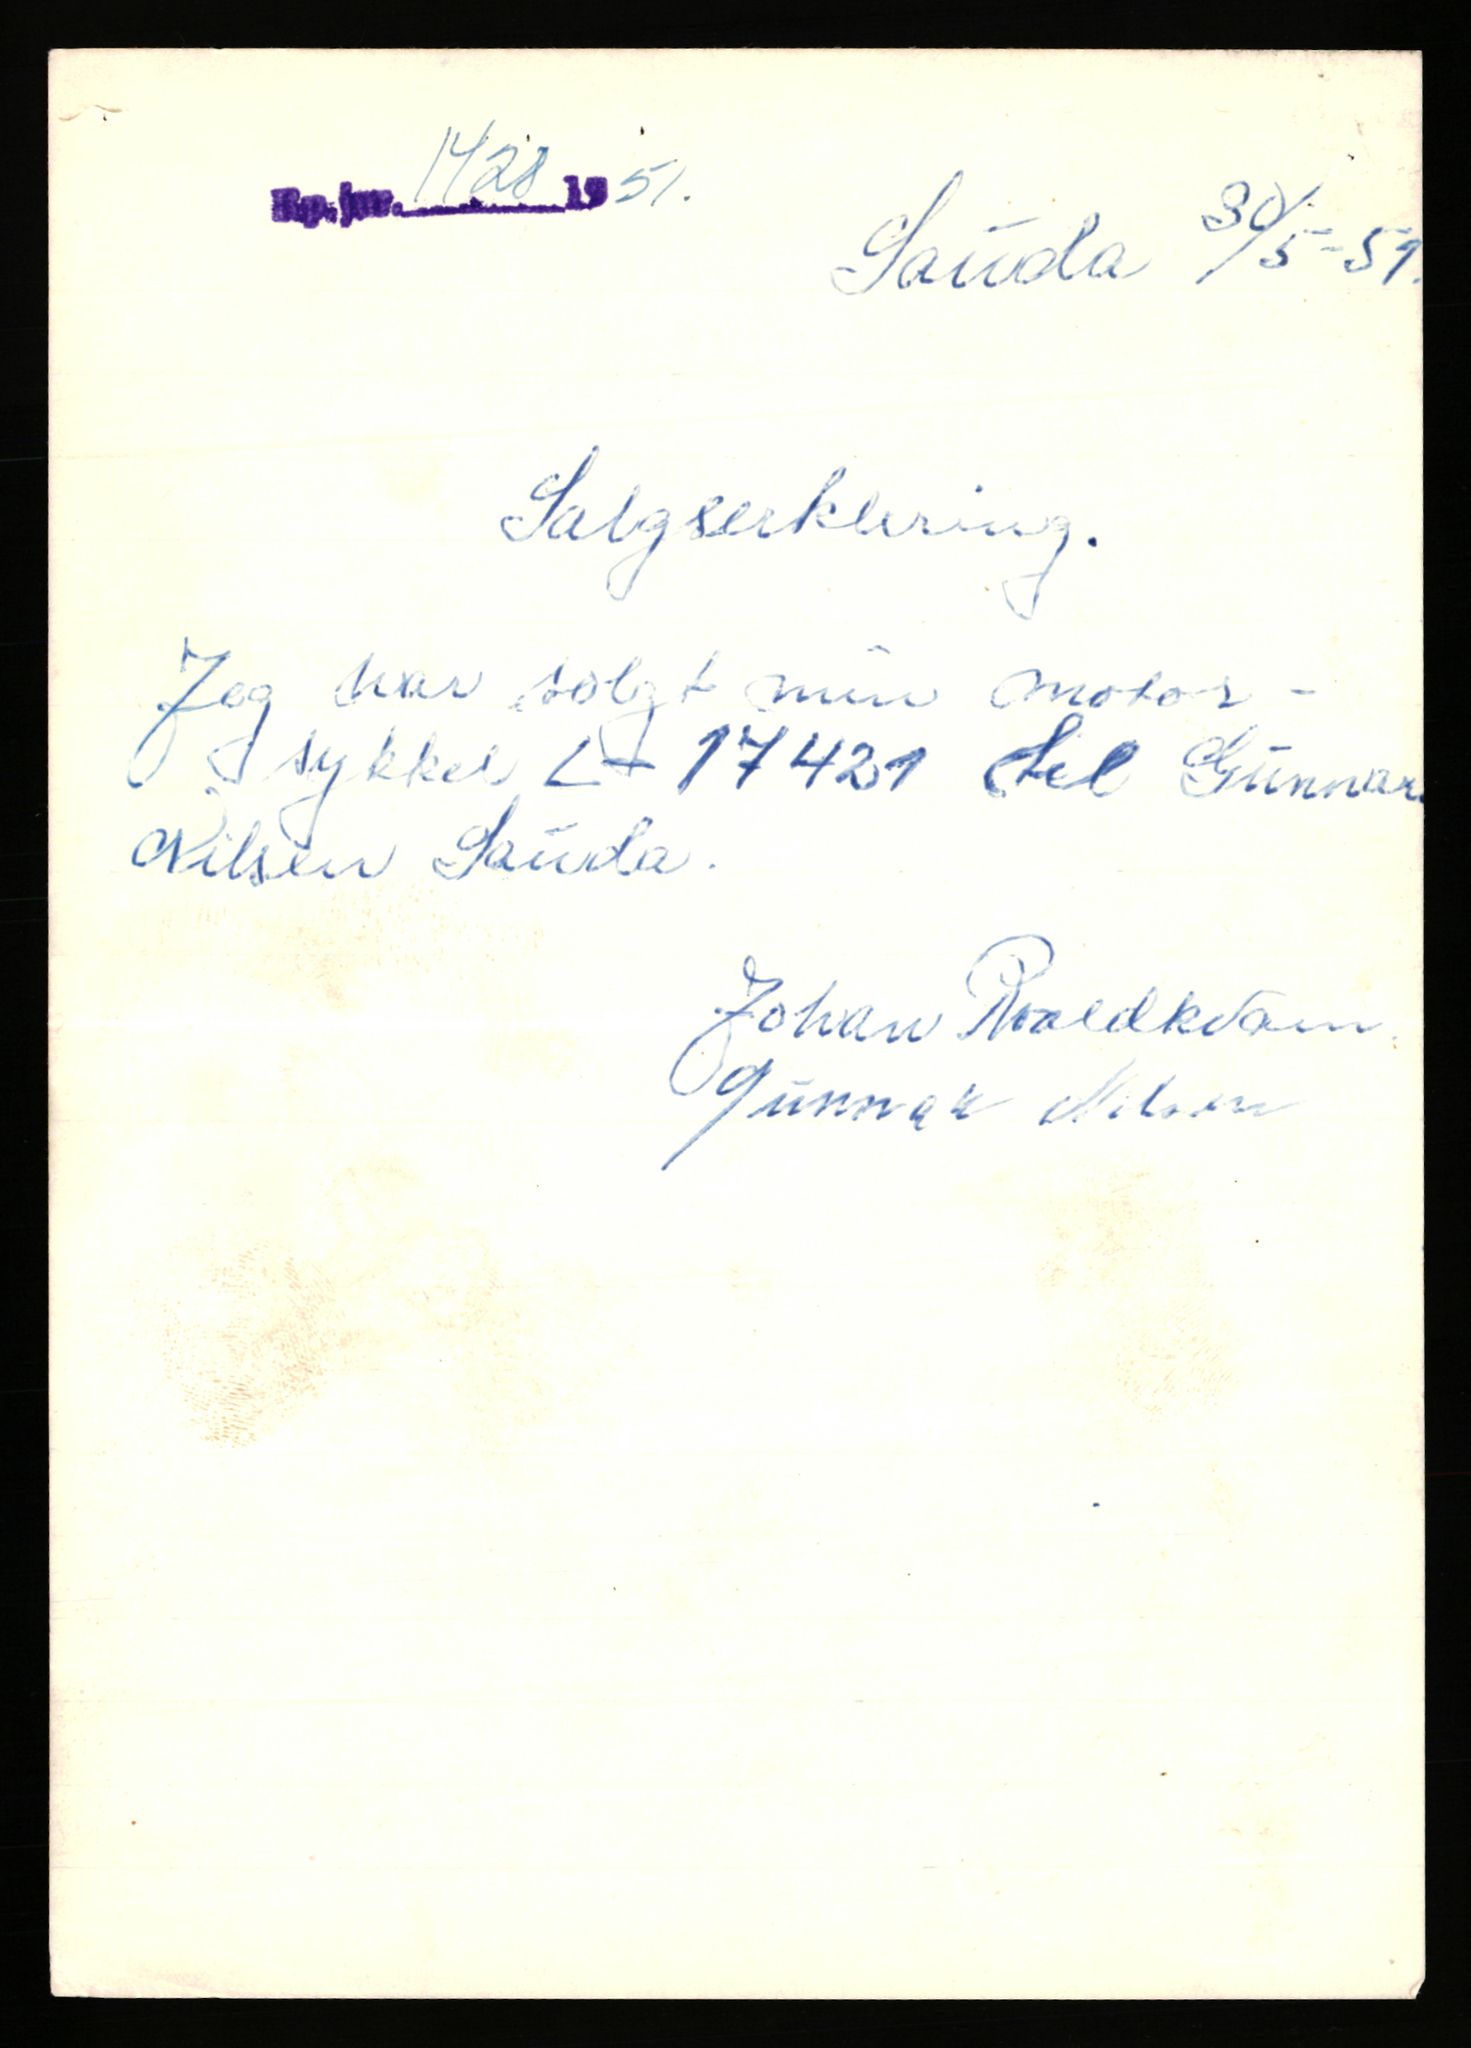 Rp.jnr. 1428 1951.
Sauda 30/5-51.
Salgserklering.
Jeg har solgt min motor-
sykkel L-17421 tel Gunnar
Nilsen Sauda.
Johan Roaldkvam.
Gunnar Nilsen